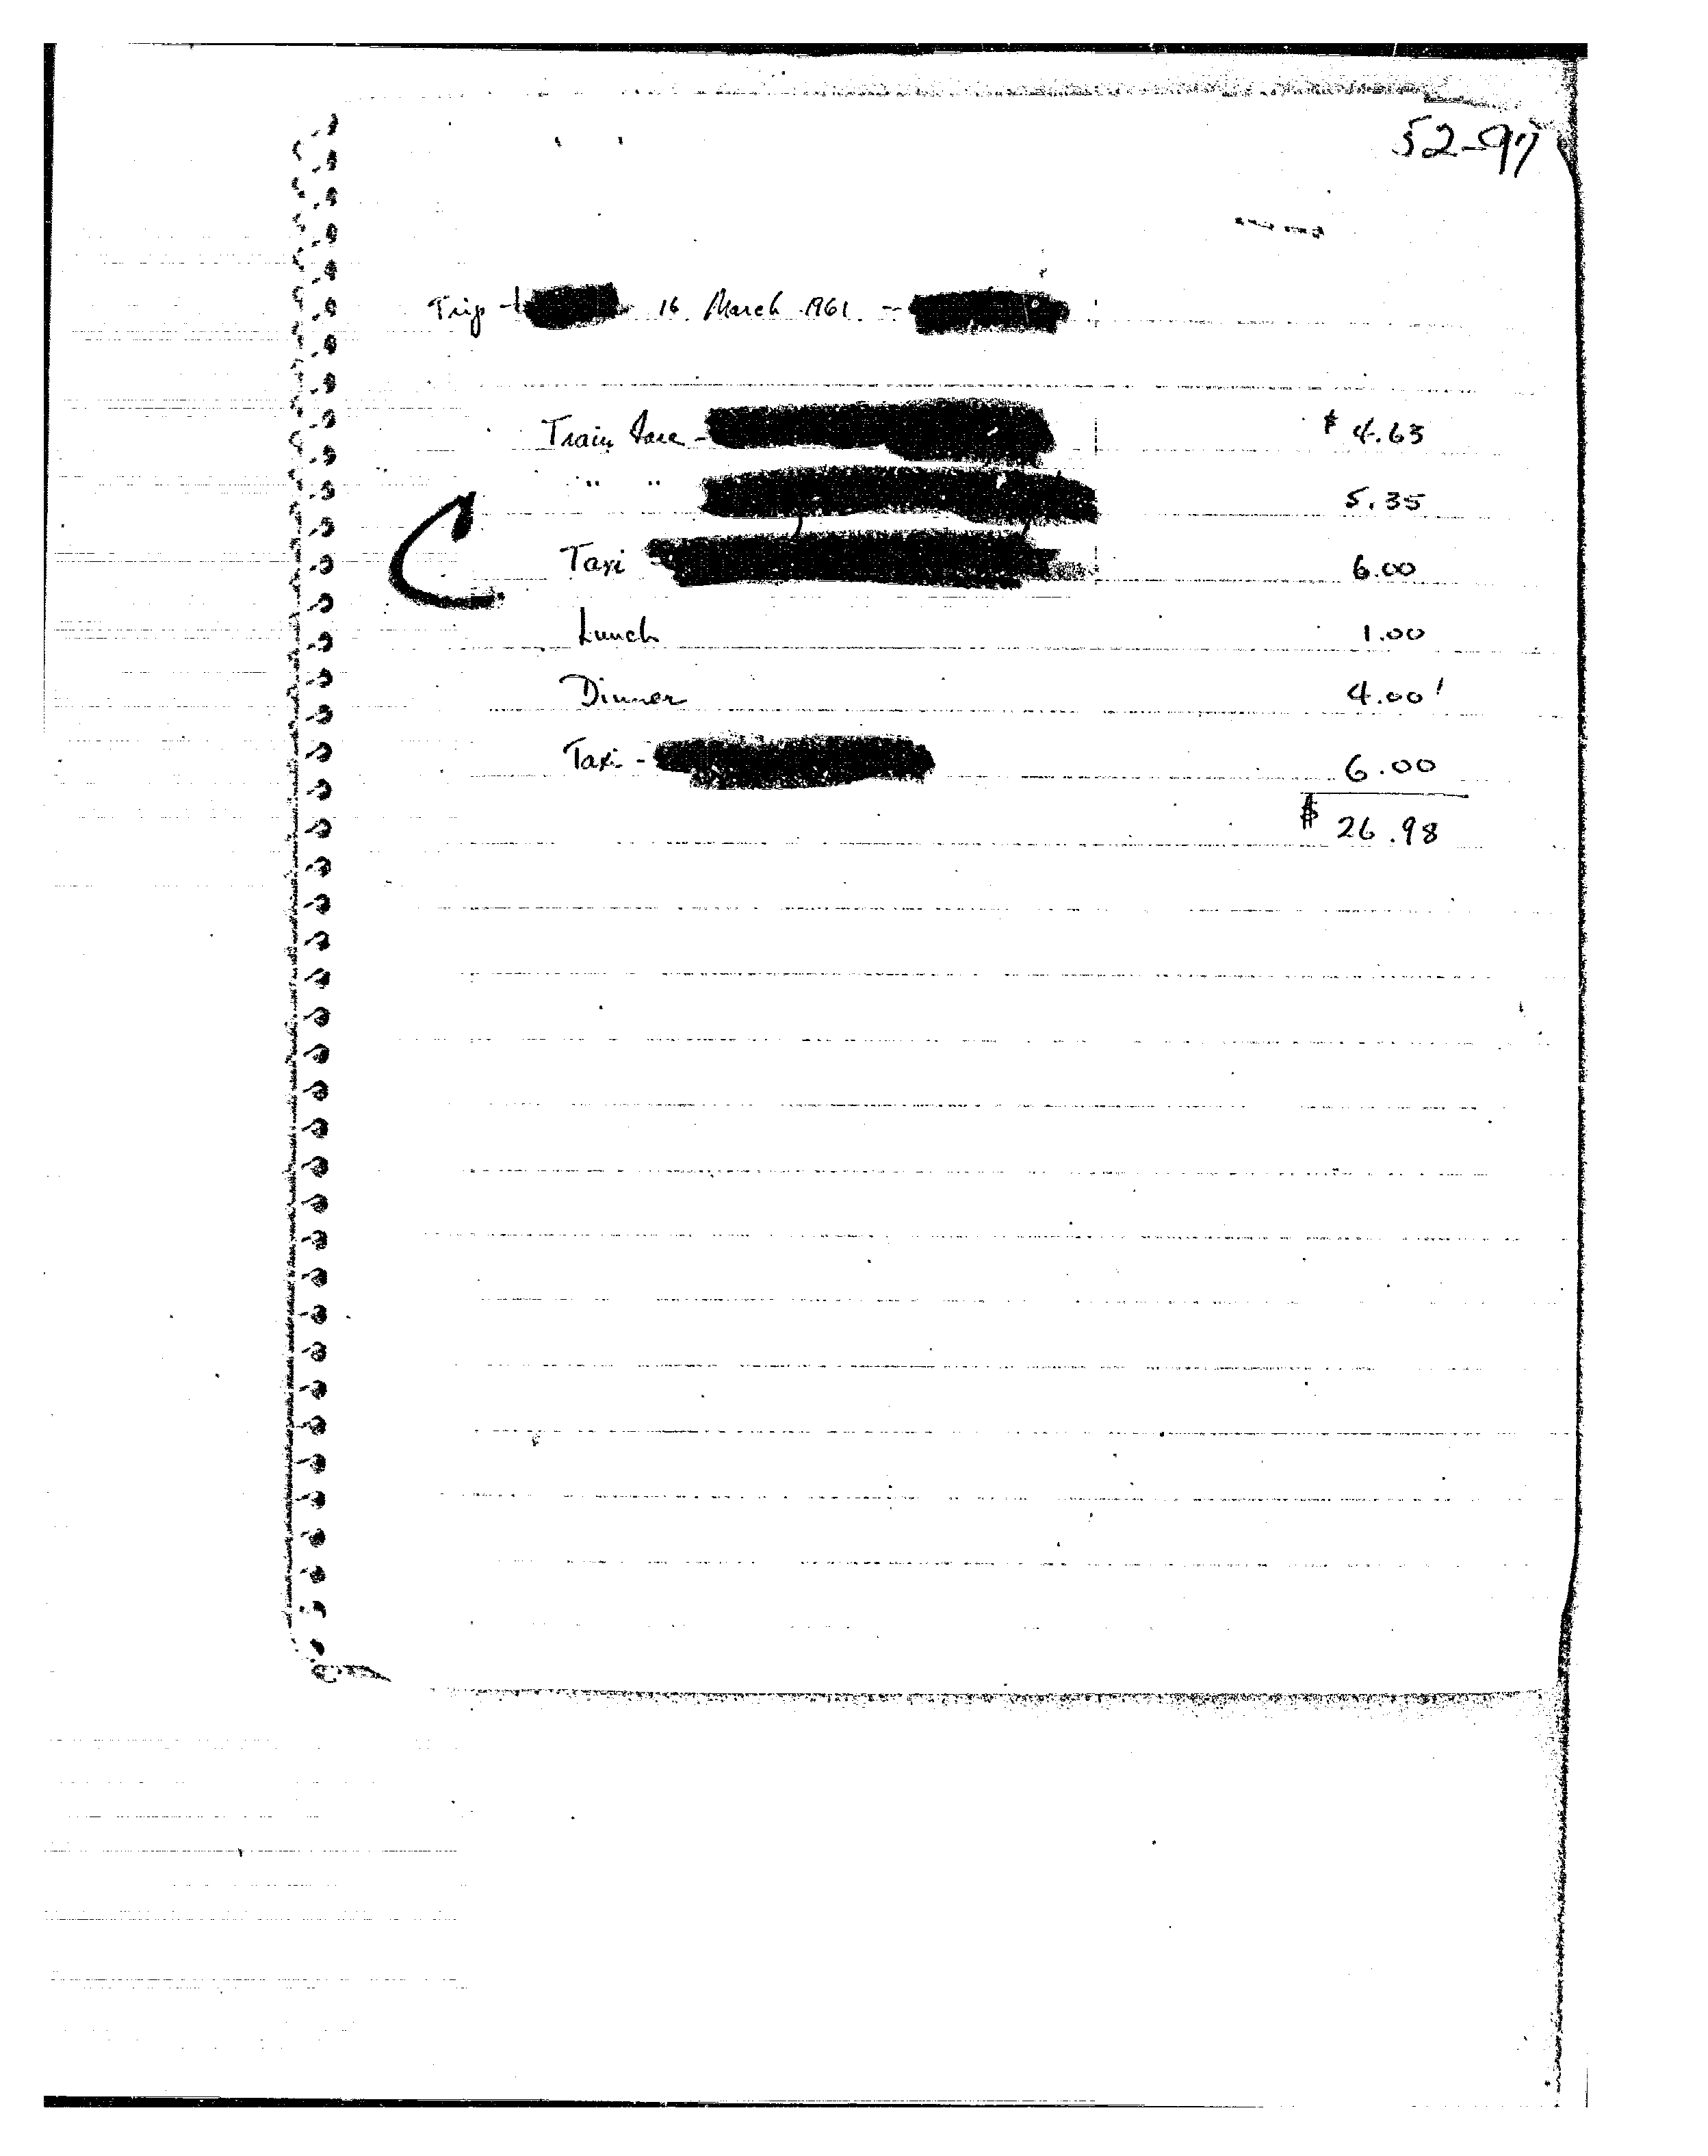 52-97
Trip 16 March 1961. -
Train fare - $ 4.63
" " 5.35
Taxi 6.00
Lunch 1.00
Dinner 4.00
Taxi - 6.00
$ 26.98
C